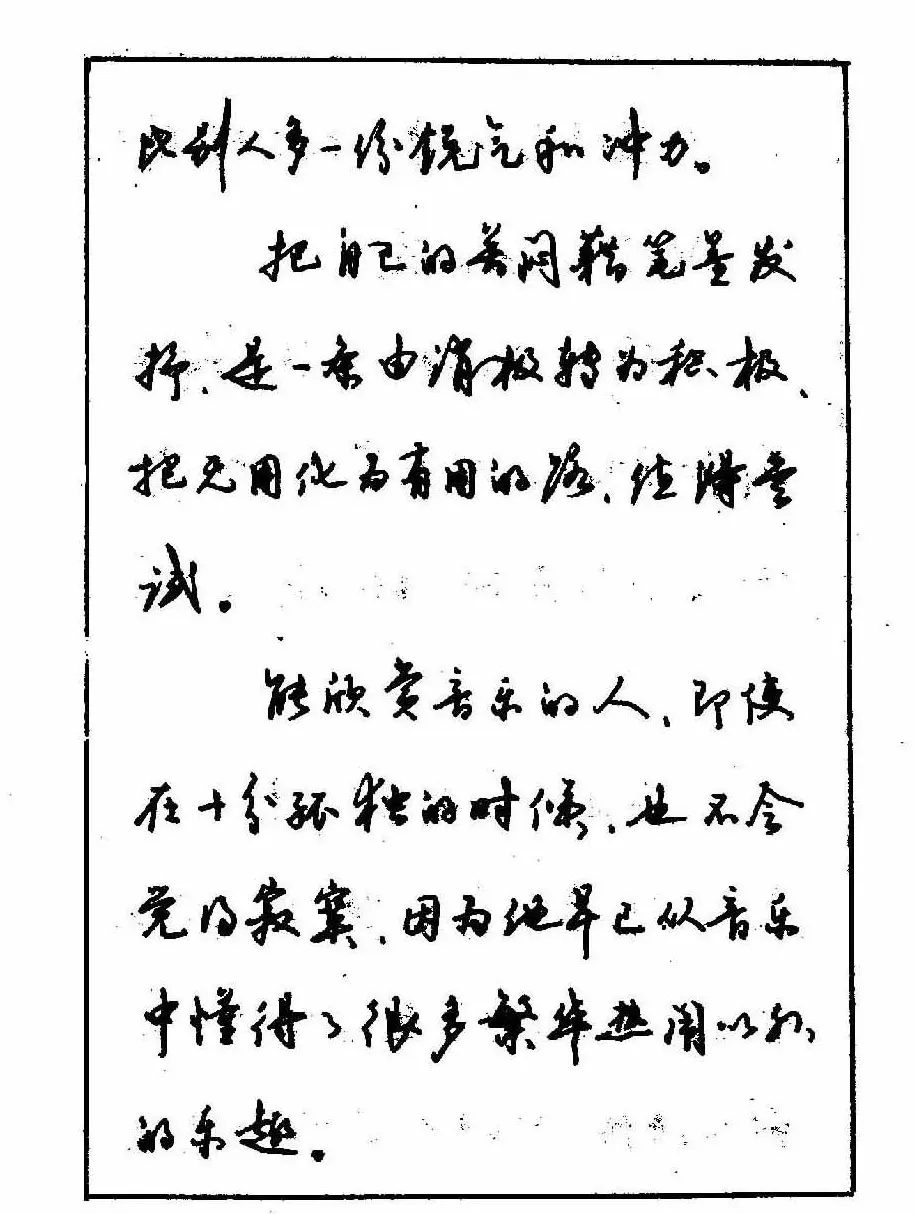 比别人多一份锐气和冲力。
把自己的苦闷藉笔墨发
抒、是一条由消极转为积极、
把无用化为有用的路、值得尝
试。
能欣赏音乐的人、即使
在十分孤独的时候、也不会
觉得寂寞、因为他早已从音乐
中懂得了很多繁华热闹以外
的乐趣。